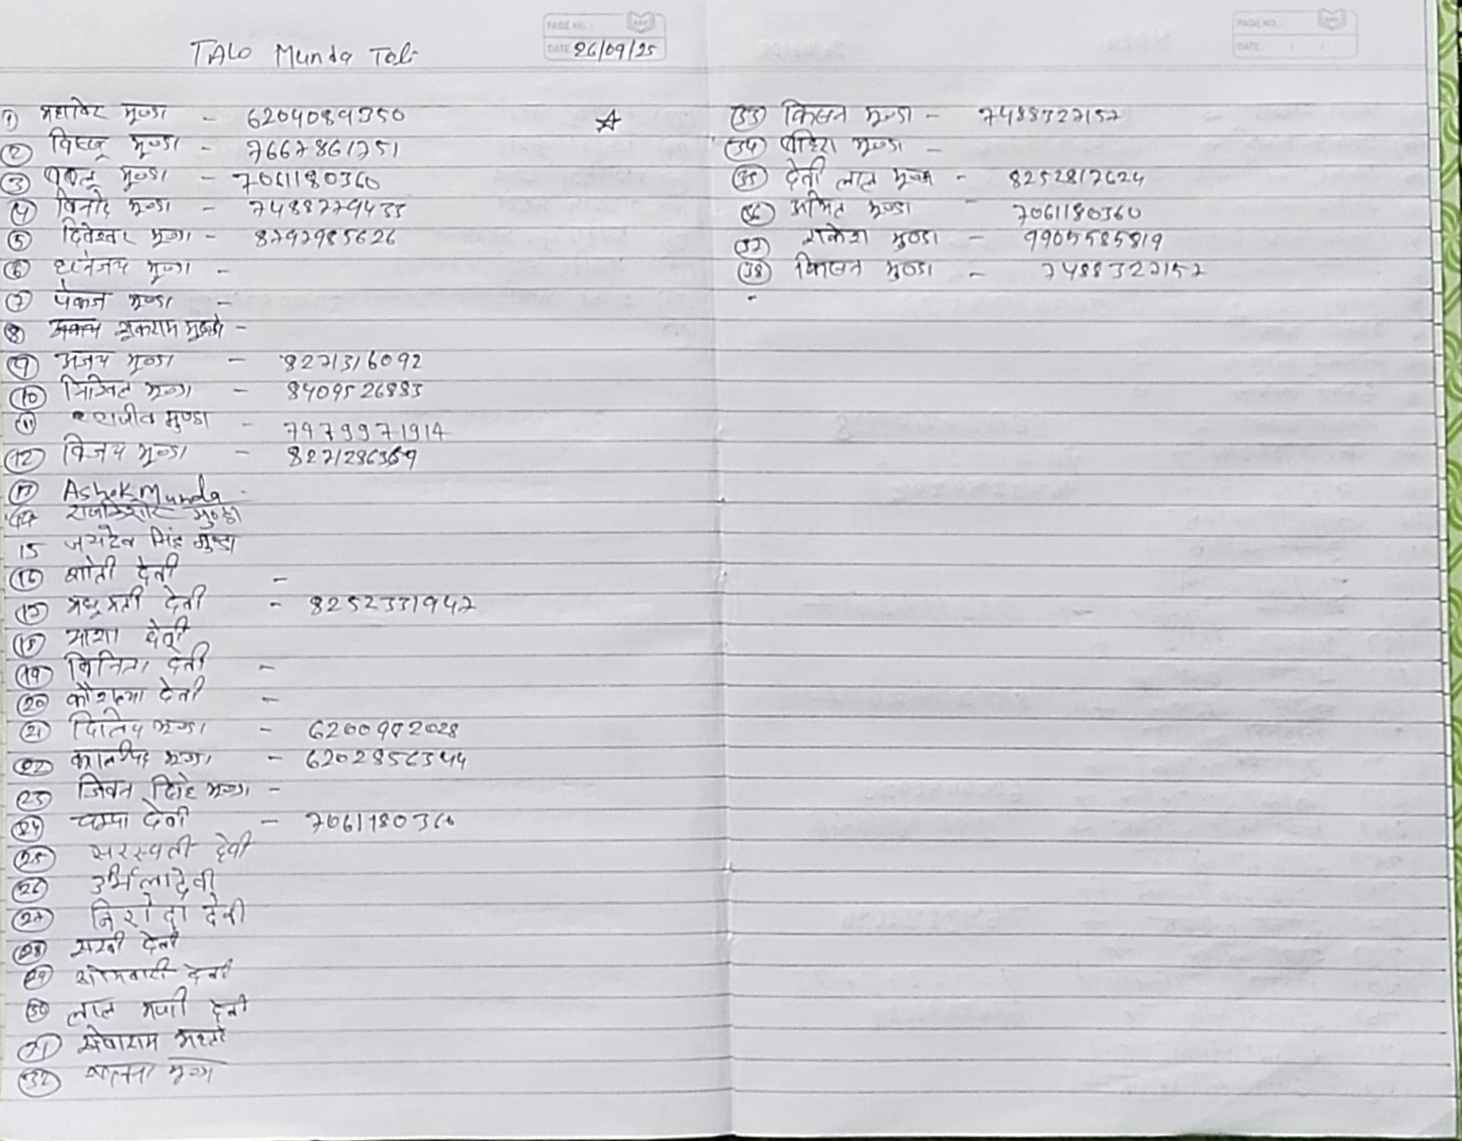 PAGE NO.:
DATE: 26/09/25
TALO Munda Toli
① महाविर मुण्डा - 6204089350
② विष्णु मुण्डा - 7667861751
③ मुण्डा - 7061180360
④ विनोद मुण्डा - 7488779433
⑤ दिनेश्वर मुण्डा - 8797985626
⑥ धनंजय मुण्डा -
⑦ पंकज मुण्डा -
⑧ शुकराम मुण्डा -
⑨ अजय मुण्डा - 8271316092
⑩ निखिल मुण्डा - 8409526883
⑪ राजीव मुण्डा - 7979971914
⑫ विजय मुण्डा - 8271286369
⑬ Ashok Munda -
⑭ राजकिशोर मुण्डा
15 जयदेव सिंह मुण्डा
⑯ शांती देवी -
⑰ मधुमती देवी - 8252331947
⑱ माया देवी
⑲ विनिता देवी -
⑳ कौशल्या देवी -
㉑ दिलिप मुण्डा - 6200982028
㉒ मुण्डा - 6202856344
㉓ जिवन सिंह मुण्डा -
㉔ चम्पा देवी - 7061180360
㉕ सरस्वती देवी
㉖ उर्मिला देवी
㉗ देवी
㉘ देवी
㉙ सोमवारी देवी
㉚ लाल मणी देवी
㉛ सेवाराम
㉜ मुण्डा
PAGE NO.:
DATE: / /
☆ ㉝ किसन मुण्डा - 7488327157
㉞ मुण्डा -
㉟ देवी लाल मुण्डा - 8252817624
㊱ अमित मुण्डा - 7061180360
㊲ राकेश मुण्डा - 9905585819
㊳ किसन मुण्डा - 7488327157